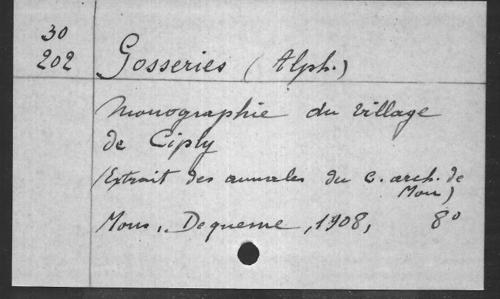 30
202
Gosseries (Alph.)
Monographie du village
de Ciply
(Extrait des annales du c. arch. de
Mons)
Mons, Dequesne, 1908, 8°